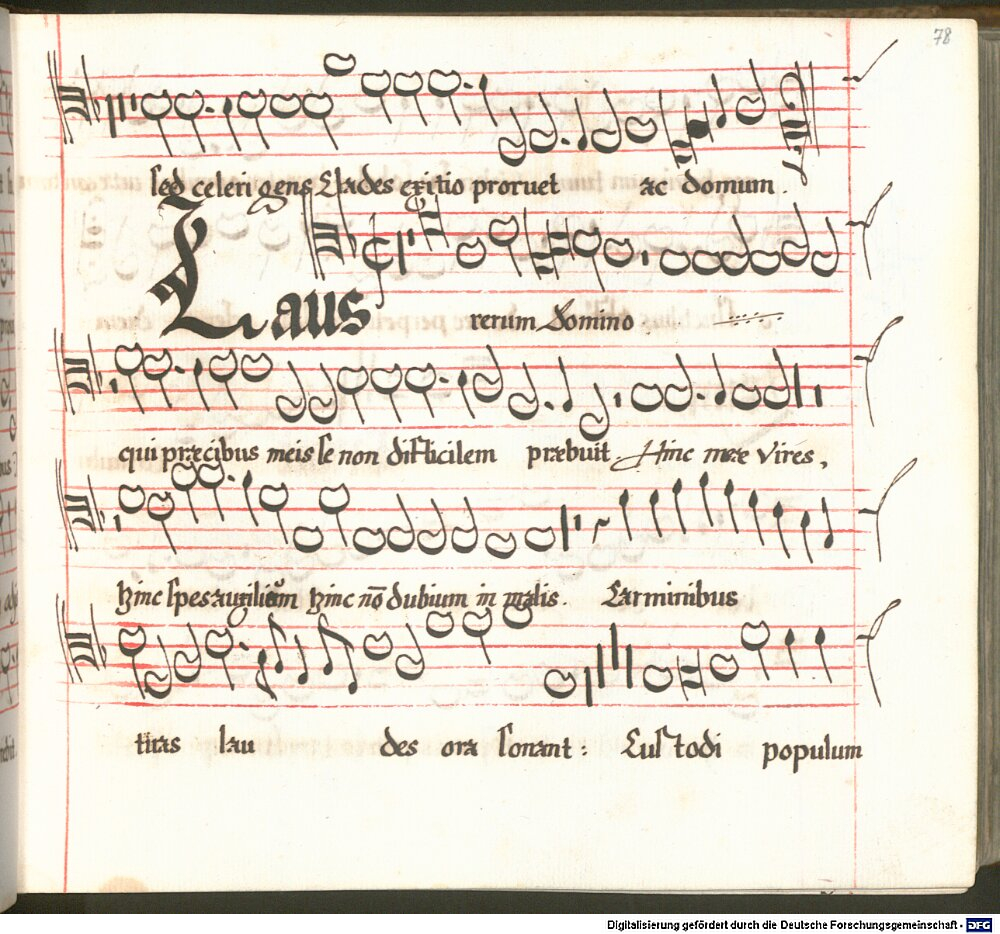 78
sed celeri gens Clades exitio proruet ac domum.
Laus rerum Domino
qui præcibus meis se non difficilem præbuit. Hinc meæ vires,
hinc spes auxiliũm hinc nõ dubium in malis. Carminibus
tuas lau des ora sonant: Custodi populum
Digitalisierung gefördert durch die Deutsche Forschungsgemeinschaft - DFG